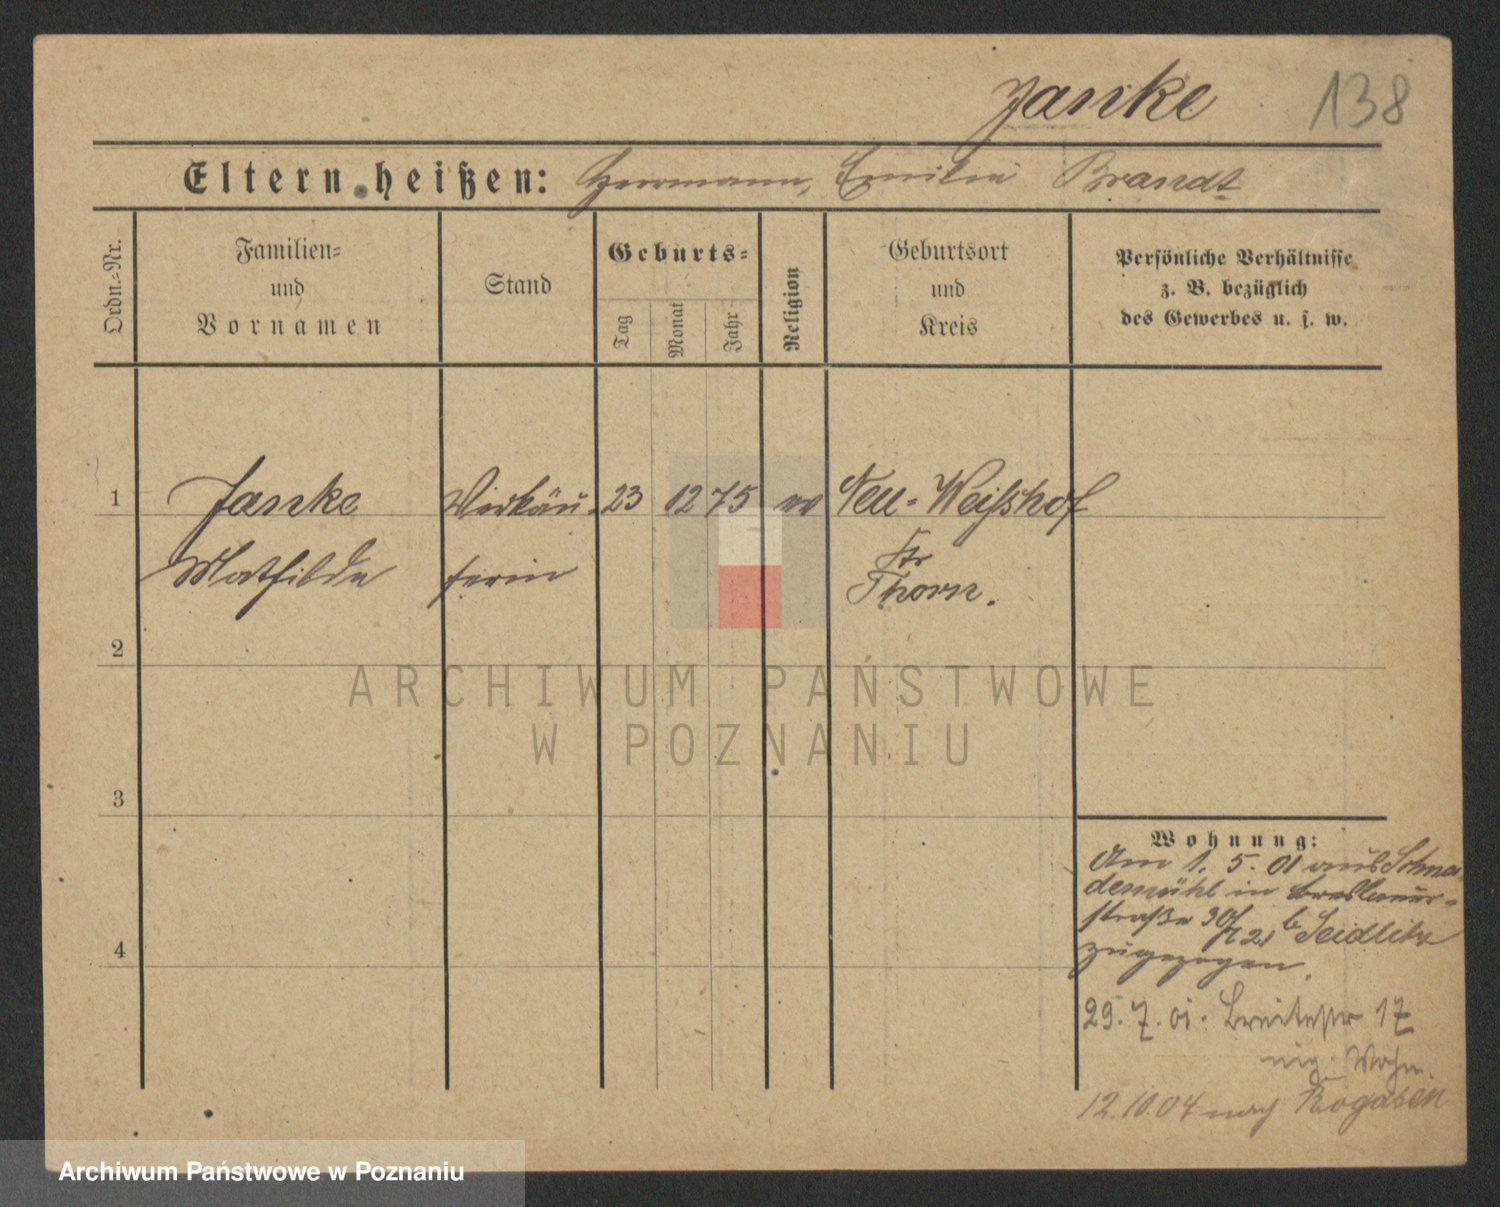 Janke 138
Eltern heißen: Herrmann, Emilie Brandt
Ordn.=Nr.
Familien=
und
Vornamen
Stand
Geburts=
Tag
Monat
Jahr
Religion
Geburtsort
und
Kreis
Persönliche Verhältnisse
z. B. bezüglich
des Gewerbes u. s. w.
1 Janke Verkäu- 23 12 75 ev Neu-Weißhof
Mathilde ferin Kr
Thorn.
2
3
4
Wohnung:
Am 1. 5. 01 aus Schnei
demühl in Breslauer-
straße 30/ b Seidlitz
zugezogen.
29. 7. 01. Breitestr 17
eig. Wohn.
12.10.04 nach Rogasen
ARCHIWUM PAŃSTWOWE
W POZNANIU
Archiwum Państwowe w Poznaniu